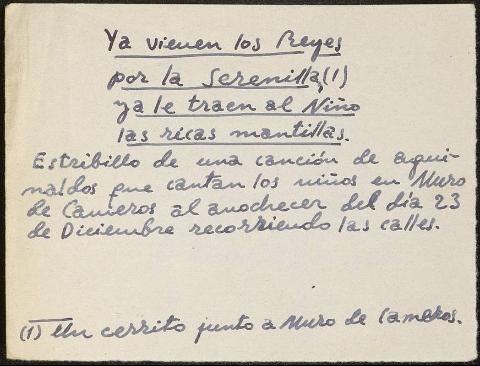 Ya vienen los Reyes
por la Serenilla,(1)
ya le traen al Niño
las ricas mantillas.
Estribillo de una canción de agui-
naldos que cantan los niños en Muro
de Cameros al anochecer del día 23
de Diciembre recorriendo las calles.
(1) Un cerrito junto a Muro de Cameros.